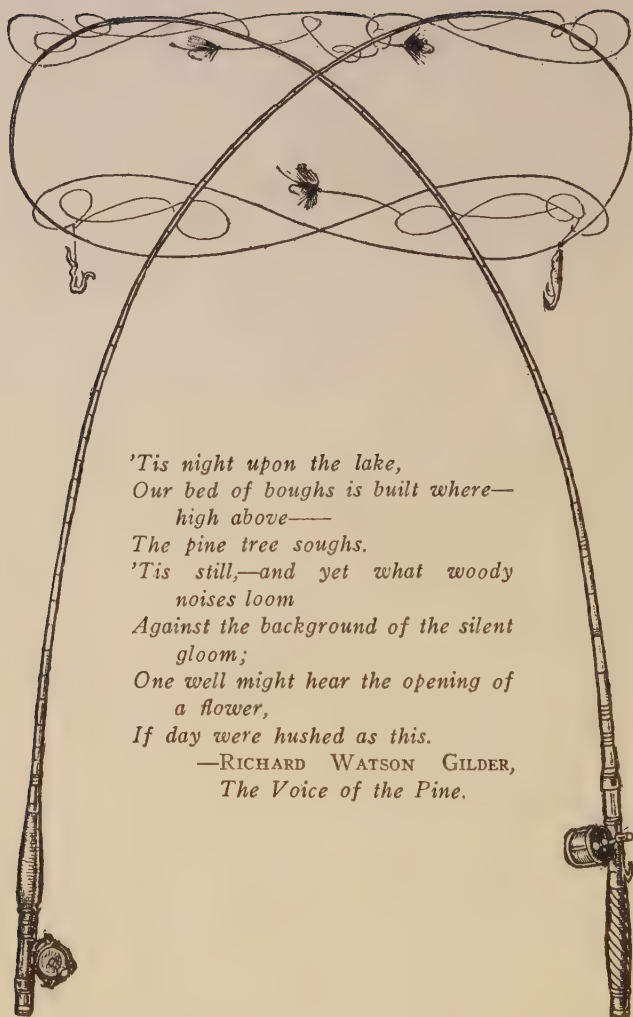 'Tis night upon the lake,
Our bed of boughs is built where—
high above——
The pine tree soughs.
'Tis still,—and yet what woody
noises loom
Against the background of the silent
gloom;
One well might hear the opening of
a flower,
If day were hushed as this.
—RICHARD WATSON GILDER,
The Voice of the Pine.